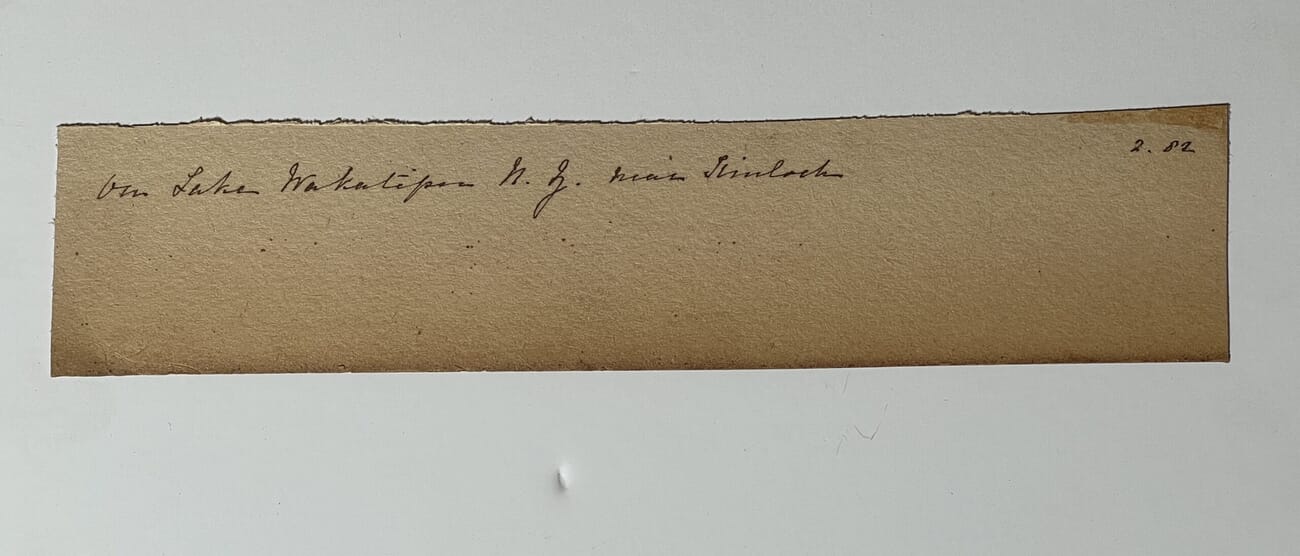 2. 82
On Lake Wakatipu N. Z. near Kinloch